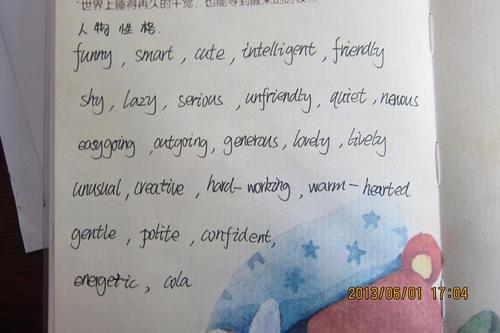 世界上睡得再久的
人物性格.
funny, smart, cute, intelligent, friendly
shy, lazy, serious, unfriendly, quiet, nervous
easygoing, outgoing, generous, lovely, lively
unusual, creative, hard-working, warm-hearted
gentle, polite, confident,
energetic, cola
2013/06/01 17:04